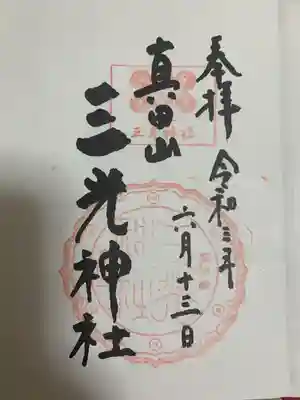 奉拝
令和三年
六月十三日
真田山
三光神社
三光神社